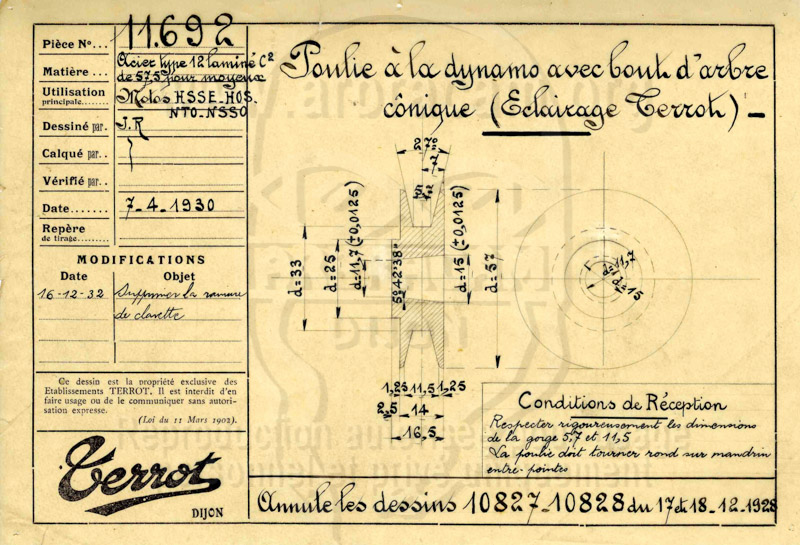 Pièce N°... 11.692
Matière... Acier type 12 laminé C²
de 57,5 pour moyeux
Utilisation
principale...... Motos HSSE_HOS_
NTO_NSSO
Dessiné par. J.R
Calqué par..
Vérifié par..
Date....... 7_4_1930
Repère
de tirage........
MODIFICATIONS
Date Objet
16-12-32 Supprimer la rainure
de clavette
Ce dessin est la propriété exclusive des
Etablissements TERROT. Il est interdit d'en
faire usage ou de le communiquer sans autori-
sation expresse.
(Loi du 11 Mars 1902).
Terrot
DIJON
Poulie à la dynamo avec bout d'arbre
cônique (Eclairage Terrot)_
7
d=33
d=25
d=11,7(±0,0125)
5°42'38"
d=15(±0,0125)
d=57
d=11,7
d=15
1,25 11,5 1,25
2,5 14
16,5
Conditions de Réception
Respecter rigoureusement les dimensions
de la gorge 5,7 et 11,5
La poulie doit tourner rond sur mandrin
entre-pointes
Annule les dessins 10827_10828 du 17 et 18_12_1928